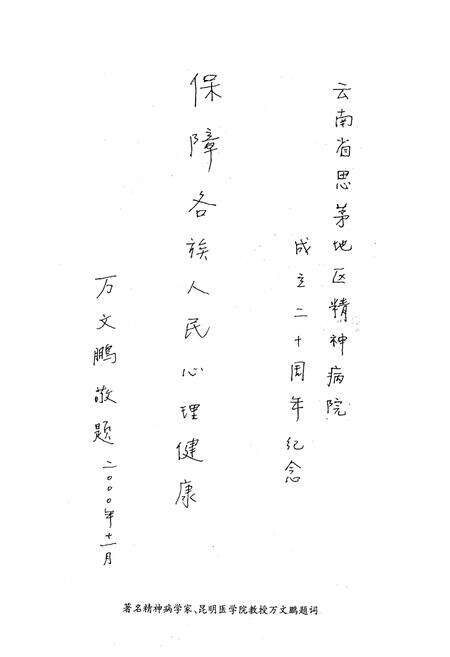 云南省思茅地区精神病院
成立二十周年纪念
保障各族人民心理健康
万文鹏敬题 二〇〇〇年十一月
著名精神病学家、昆明医学院教授万文鹏题词